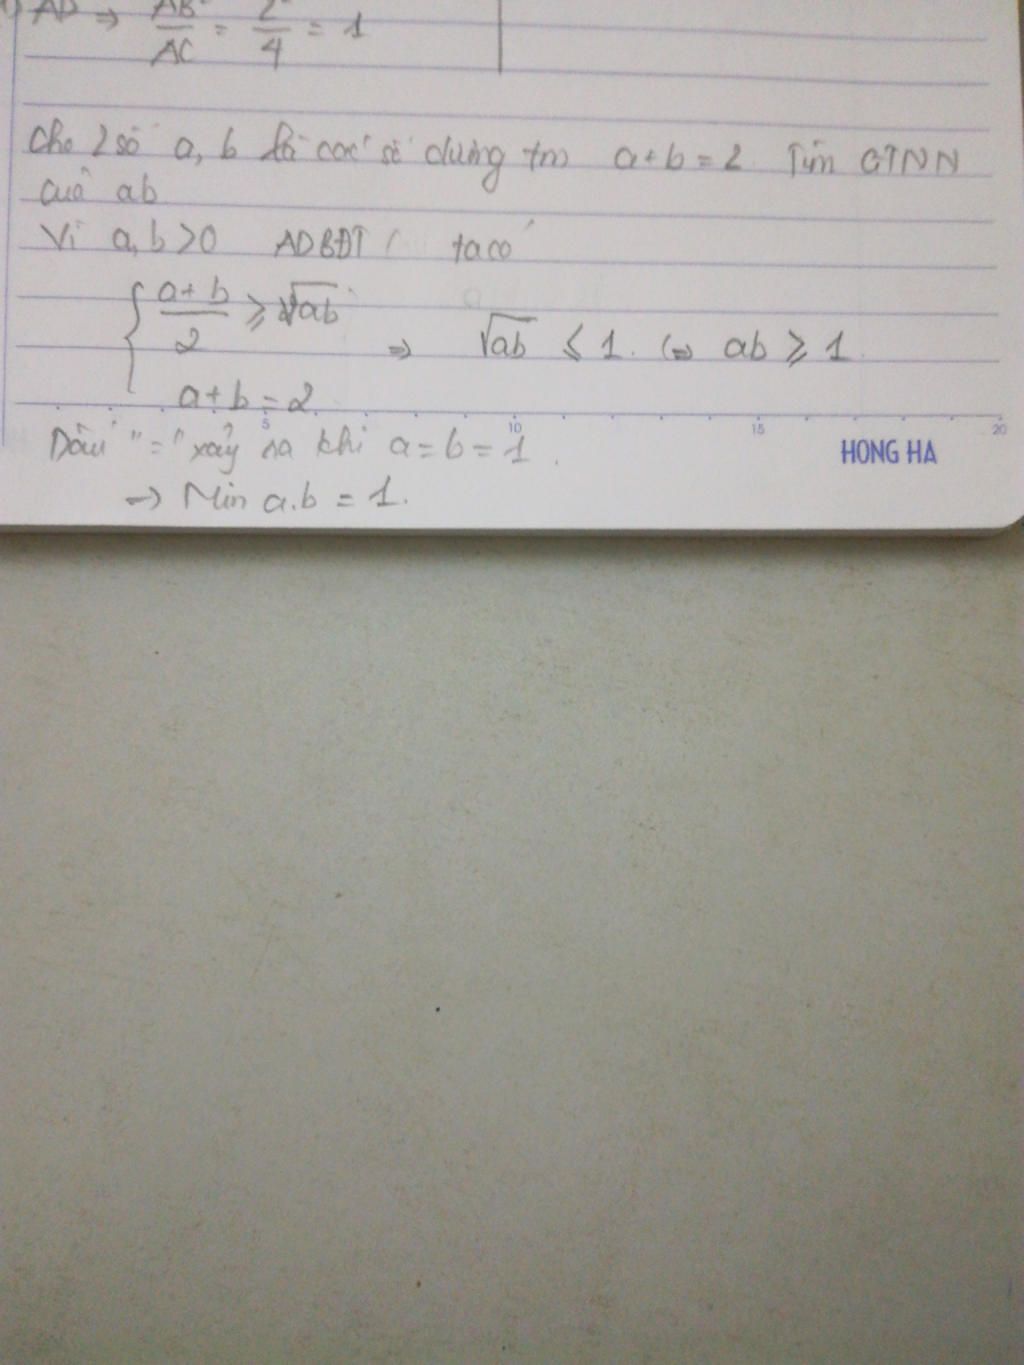 AD ⇒ AB/AC = 2/4 = 1
Cho 2 số a, b là các số dương tm a+b=2 Tìm GTNN
của ab
Vì a,b>0 ADBĐT ta có
{ (a+b)/2 ≥ √ab ⇒ √ab ≤ 1. ⇔ ab ≥ 1
a+b=2
5 10 15 20
Dấu "=" xảy ra khi a=b=1.
→ Min a.b = 1.
HONG HA